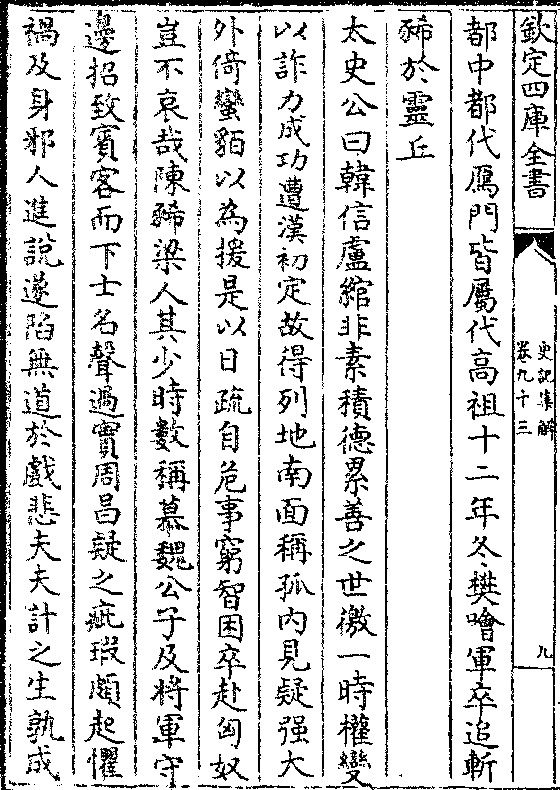 欽定四庫全書
史記集解
卷九十三
九
都中都代鴈門皆屬代高祖十二年冬樊噲軍卒追斬
豨於靈丘
太史公曰韓信盧綰非素積德累善之世徼一時權變
以詐力成功遭漢初定故得列地南面稱孤内見疑强大
外倚蠻貊以為援是以日疏自危事窮智困卒赴匈奴
豈不哀哉陳豨梁人其少時數稱慕魏公子及將軍守
邊招致賓客而下士名聲過實周昌疑之疵瑕頗起懼
禍及身邪人進說遂陷無道於戲悲夫夫計之生孰成